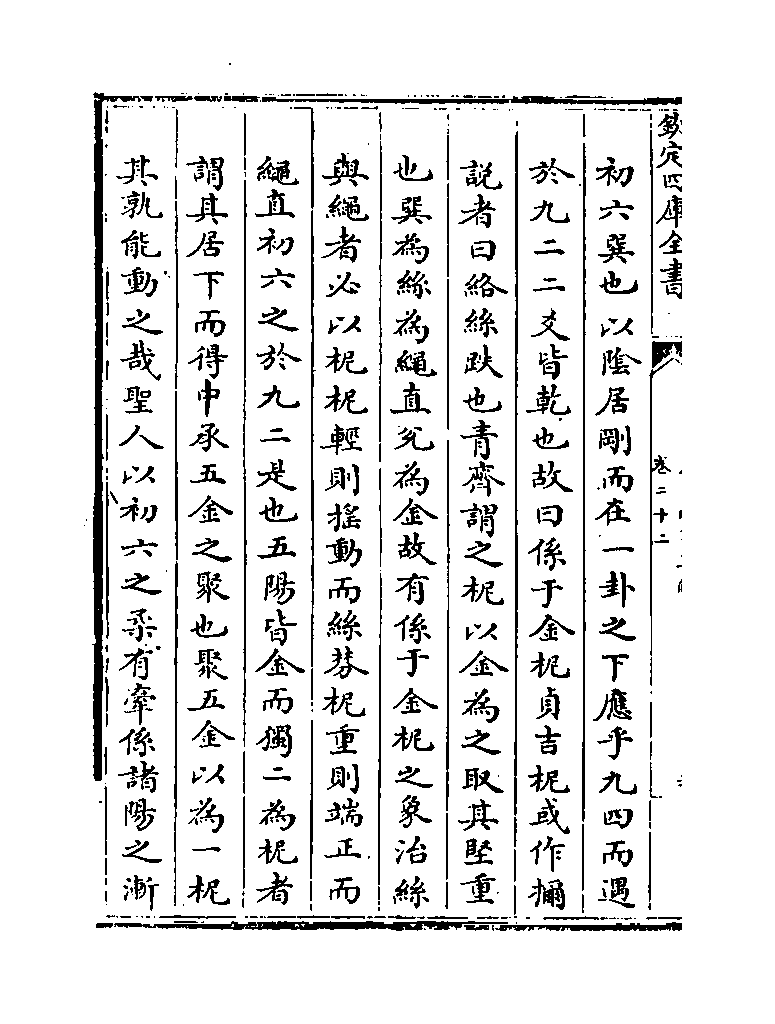 欽定四庫全書
卷二十二
初六巽也以陰居剛而在一卦之下應乎九四而遇
於九二二爻皆乾也故曰係于金柅貞吉柅或作檷
説者曰絡絲趺也青齊謂之柅以金為之取其堅重
也巽為絲為繩直兊為金故有係于金柅之象治絲
與繩者必以柅柅輕則揺動而絲棼柅重則端正而
繩直初六之於九二是也五陽皆金而獨二為柅者
謂其居下而得中承五金之聚也聚五金以為一柅
其孰能動之哉聖人以初六之柔有牽係諸陽之漸